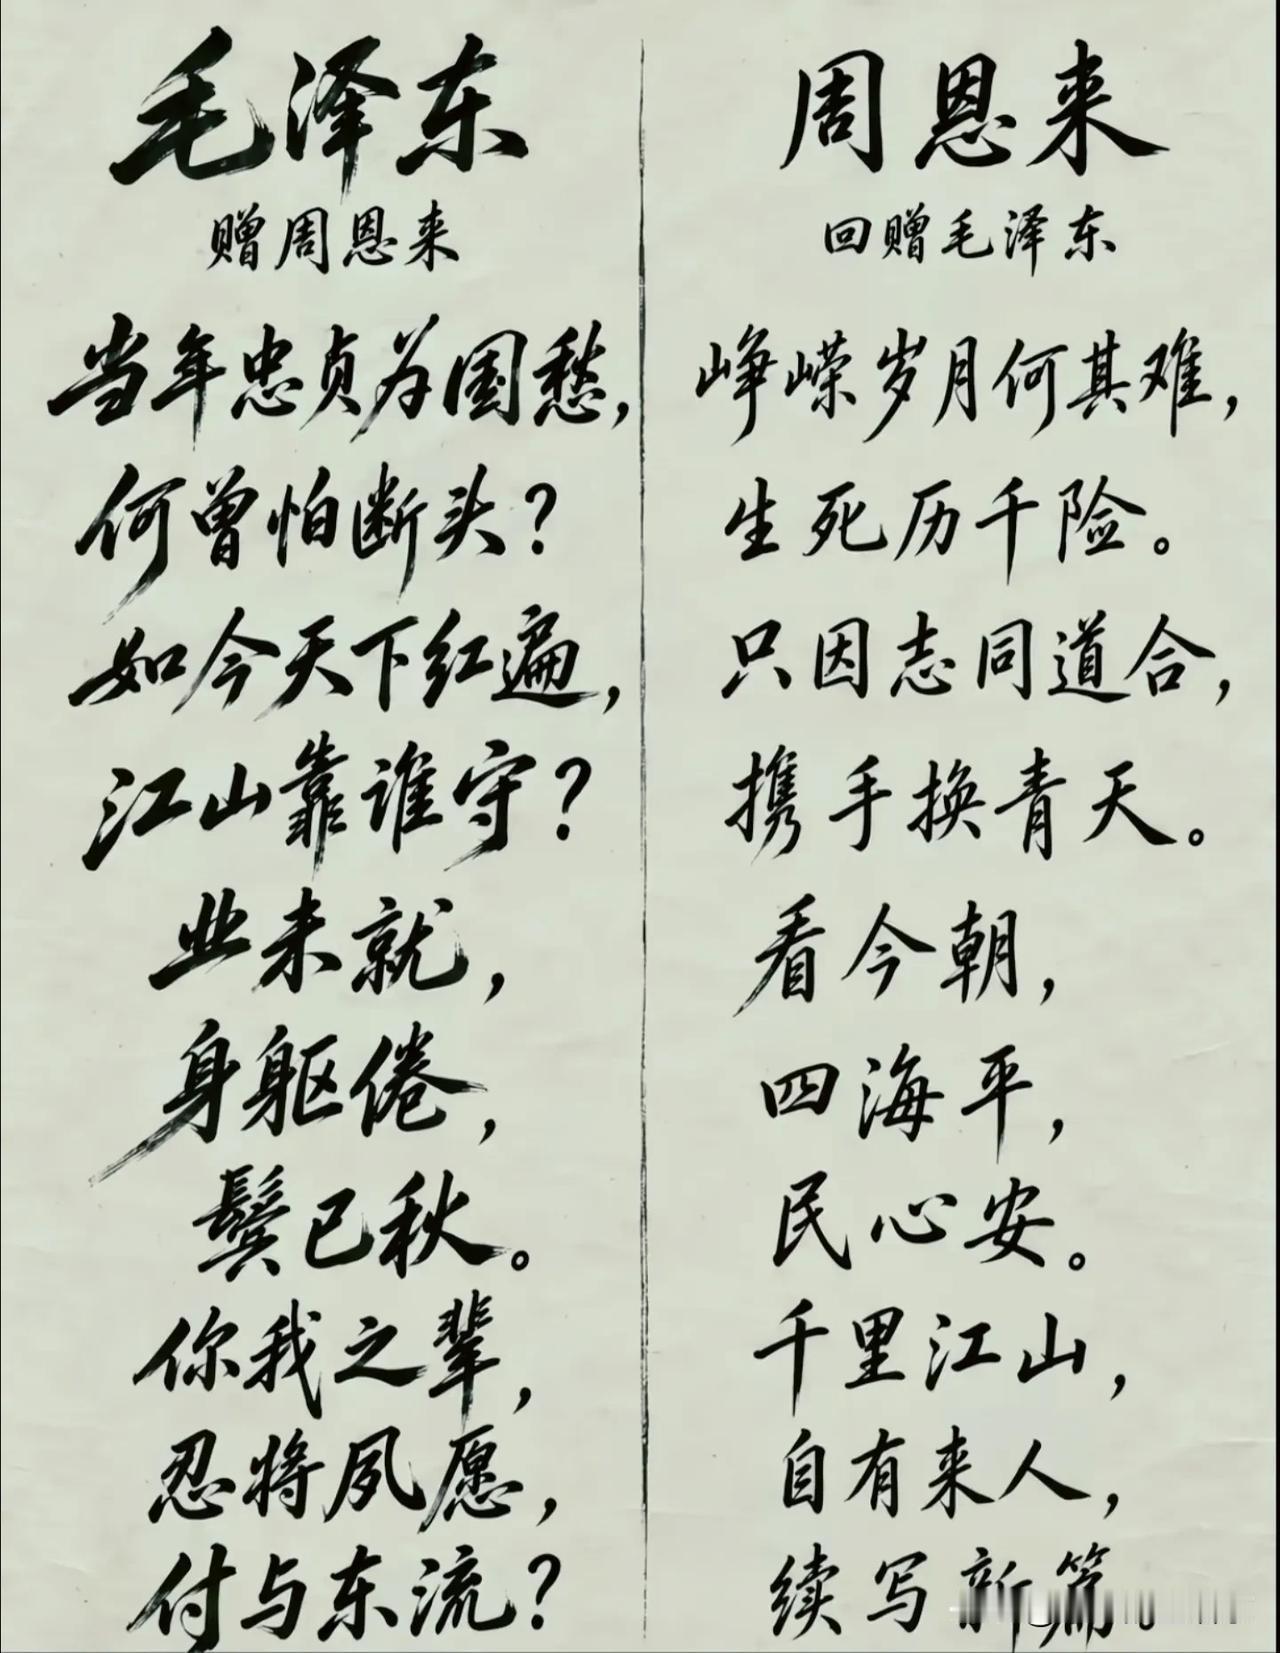 毛泽东
赠周恩来
当年忠贞为国愁，
何曾怕断头？
如今天下红遍，
江山靠谁守？
业未就，
身躯倦，
鬓已秋。
你我之辈，
忍将夙愿，
付与东流？
周恩来
回赠毛泽东
峥嵘岁月何其难，
生死历千险。
只因志同道合，
携手换青天。
看今朝，
四海平，
民心安。
千里江山，
自有来人，
续写新篇。